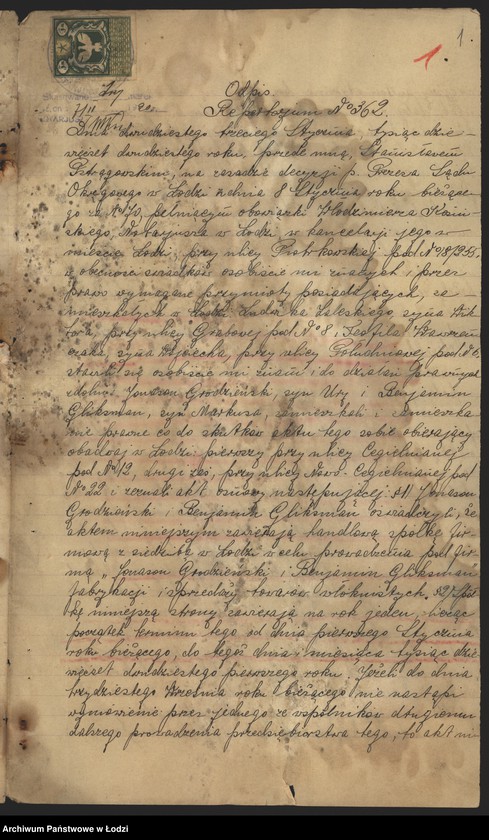 1.
1
Odpis.
Repertorjum № 362.
Dnia dwudziestego trzeciego Stycznia, tysiąc dzie-
więcset dwudziestego roku, przede mną, Stanisławem
Pstrągowskim, na zasadzie decyzji p. Prezesa Sądu
Okręgowego w Łodzi z dnia 8 Stycznia roku bieżące-
go za pełniącym obowiązki Włodzimierza
Notarjusza w Łodzi, w kancelarji jego w
mieście Łodzi, przy ulicy Piotrkowskiej pod №
w obecności świadków osobiście mi znanych i przez
prawo wymagane przymioty posiadających, za-
mieszkałych w Łodzi: Ludwika Zaleskiego, syna Wik-
tora, przy ulicy Grabowej pod № 8 i Teofila Wawrzon
czaka, syna Wojciecha, przy ulicy Południowej pod №
stawili się osobiście mi znani i do działań prawnych
zdolni: Jonason Grodzieński, syn Ury i Benjamin
Gliksman, syn Markusa, zamieszkali i zamieszka-
nie prawne co do skutków aktu tego sobie obierający
obadwaj w Łodzi: pierwszy przy ulicy Cegielnianej
pod № 19, drugi zaś, przy ulicy Nowo-Cegielnianej pod
№ 22 i zeznali akt osnowy następującej: §1. Jonason
Grodzieński i Benjamin Gliksman oświadczyli, że
aktem niniejszym zawierają handlową spółkę fir-
mową z siedzibą w Łodzi w celu prowadzenia pod fir-
mą „Jonason Grodzieński i Benjamin Gliksman"
fabrykacji i sprzedaży towarów włóknistych. §2) Spół
kę niniejszą strony zawierają na rok jeden, licząc
początek komu tego od dnia pierwszego Stycznia
roku bieżącego, do tegoż dnia i miesiąca tysiąc dzie
więcset dwudziestego pierwszego roku. Jeżeli do dnia
trzydziestego Września roku bieżącego nie nastąpi
wymówienie przez jednego ze wspólników drugiemu
dalszego prowadzenia przedsiębiorstwa tego, to akt ni
Archiwum Państwowe w Łodzi